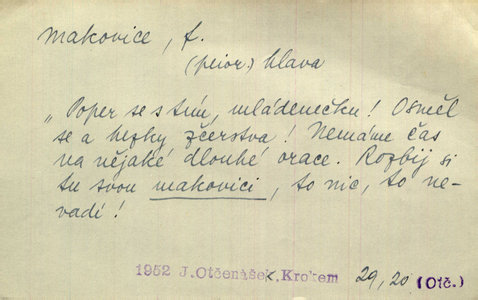 makovice, f.
(peior.) hlava
„Poper se s tím, mládenečku! Osměl
se a hezky zčerstva! Nemáme čas
na nějaké dlouhé orace. Rozbij si
tu svou makovici, to nic, to ne-
vadí!
1952 J.Otčenášek, Krokem 29,20 (Otč.)